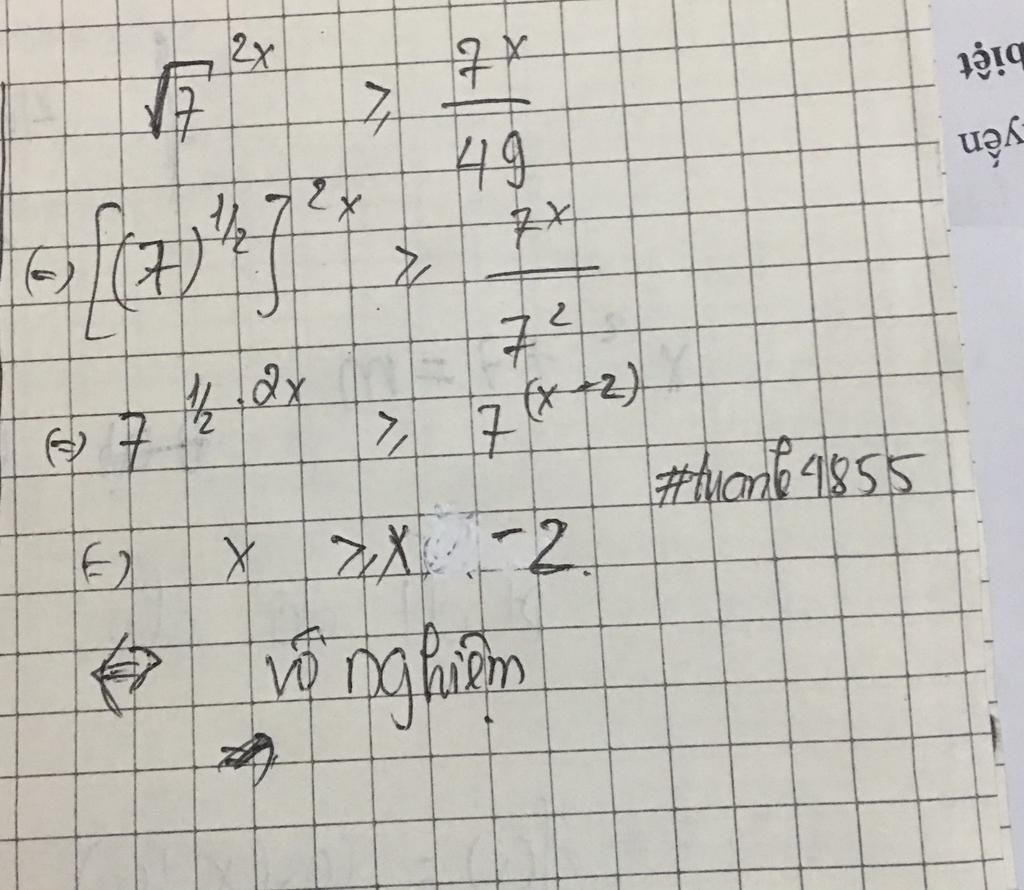 √7^{2x} ≥ 7^x/49
(=) [(7)^{1/2}]^{2x} ≥ 7^x/7^2
(=) 7^{1/2 . 2x} ≥ 7^{(x-2)}
#tuanle4855
(=) x ≥ x - 2.
⇔ vô nghiệm
biệt
yến